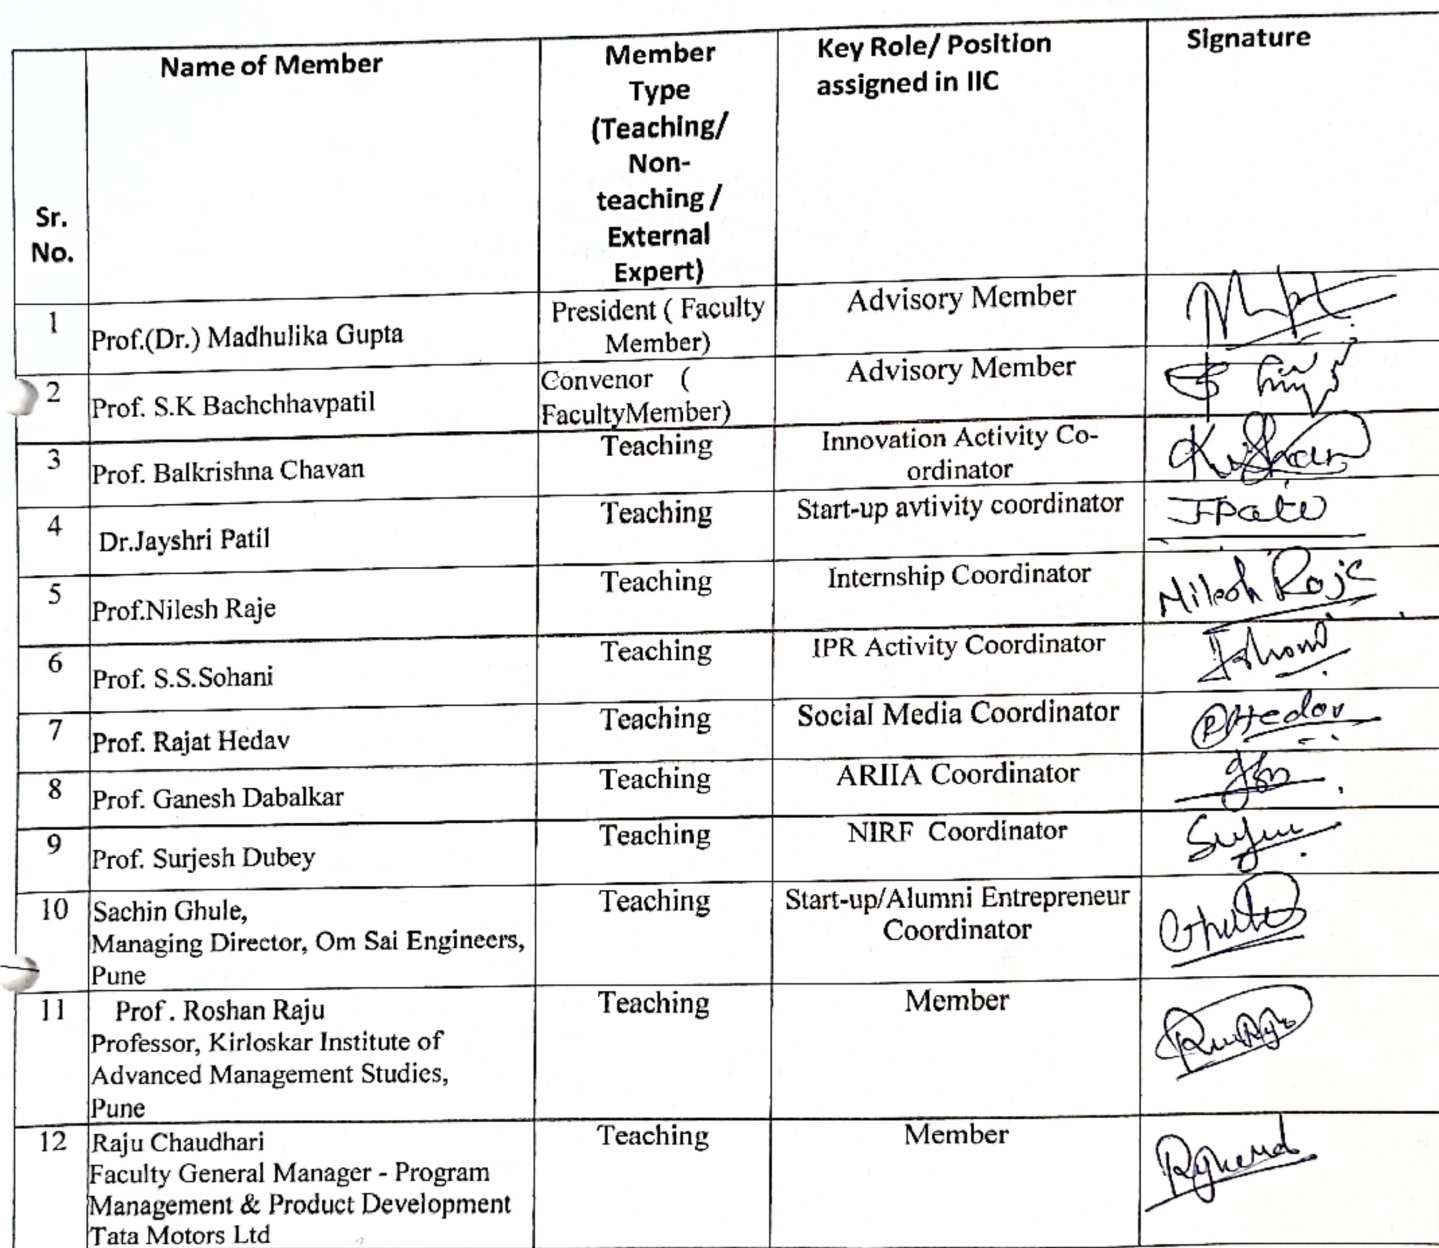 Sr.
No.
Name of Member
Member
Type
(Teaching/
Non-
teaching /
External
Expert)
Key Role/ Position
assigned in IIC
Signature
1
Prof.(Dr.) Madhulika Gupta
President ( Faculty
Member)
Advisory Member
2
Prof. S.K Bachchhavpatil
Convenor (
FacultyMember)
Advisory Member
3
Prof. Balkrishna Chavan
Teaching
Innovation Activity Co-
ordinator
4
Dr.Jayshri Patil
Teaching
Start-up avtivity coordinator
5
Prof.Nilesh Raje
Teaching
Internship Coordinator
Nilesh Raje
6
Prof. S.S.Sohani
Teaching
IPR Activity Coordinator
7
Prof. Rajat Hedav
Teaching
Social Media Coordinator
8
Prof. Ganesh Dabalkar
Teaching
ARIIA Coordinator
9
Prof. Surjesh Dubey
Teaching
NIRF Coordinator
10
Sachin Ghule,
Managing Director, Om Sai Engineers,
Pune
Teaching
Start-up/Alumni Entrepreneur
Coordinator
11
Prof. Roshan Raju
Professor, Kirloskar Institute of
Advanced Management Studies,
Pune
Teaching
Member
12
Raju Chaudhari
Faculty General Manager - Program
Management & Product Development
Tata Motors Ltd
Teaching
Member